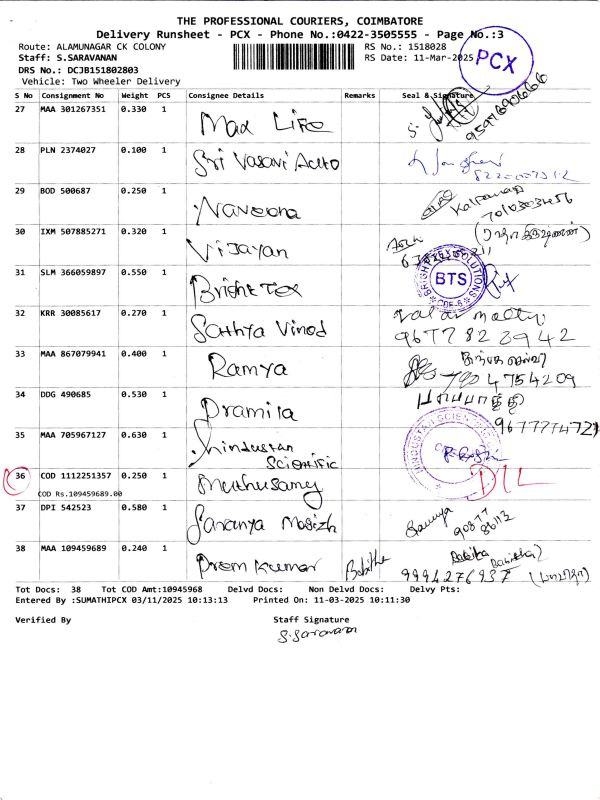 THE PROFESSIONAL COURIERS, COIMBATORE
Delivery Runsheet - PCX - Phone No.:0422-3505555 - Page No.:3
Route: ALAMUNAGAR CK COLONY
RS No.: 1518028
Staff: S.SARAVANAN
RS Date: 11-Mar-2025
PCX
DRS No.: DCJB151802803
Vehicle: Two Wheeler Delivery
S No Consignment No Weight PCS Consignee Details Remarks Seal & Signature
27 MAA 301267351 0.330 1 Max Life
28 PLN 2374027 0.100 1 Sri Vasavi Auto
29 BOD 500687 0.250 1 Naveena
30 IXM 507885271 0.320 1 Vijayan
31 SLM 366059897 0.550 1 Bright Tex BTS
32 KRR 30085617 0.270 1 Sathya Vinod
9677823942
33 MAA 867079941 0.400 1 Ramya
34 DDG 490685 0.530 1 Pramila
35 MAA 705967127 0.630 1 Hindustan
Scientific
36 COD 1112251357 0.250 1 Muthusamy DIL
COD Rs.109459689.00
37 DPI 542523 0.580 1 Saranya
38 MAA 109459689 0.240 1 Prem Kumar
9994276937
Tot Docs: 38 Tot COD Amt:10945968 Delvd Docs: Non Delvd Docs: Delvy Pts:
Entered By :SUMATHIPCX 03/11/2025 10:13:13 Printed On: 11-03-2025 10:11:30
Verified By Staff Signature
S.Saravanan